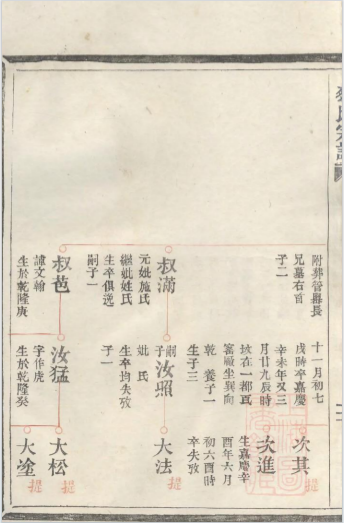 附葬管墓長
兄墓右首
子二
叔滿
元妣施氏
繼妣姓氏
生卒俱逸
嗣子一
叔芭
諱文翰
生於乾隆庚
十一月初七
戌時卒嘉慶
辛未年又三
月廿九辰時
坟在一都
窩厰坐巽向
乾 養子一
生子三
嗣子
汝照
妣 氏
生卒均失攷
子一
汝猛
字作虎
生於乾隆癸
次其
次進
生嘉慶辛
酉年六月
初六酉時
卒失攷
大法
大松
大塗
提
提
提
提